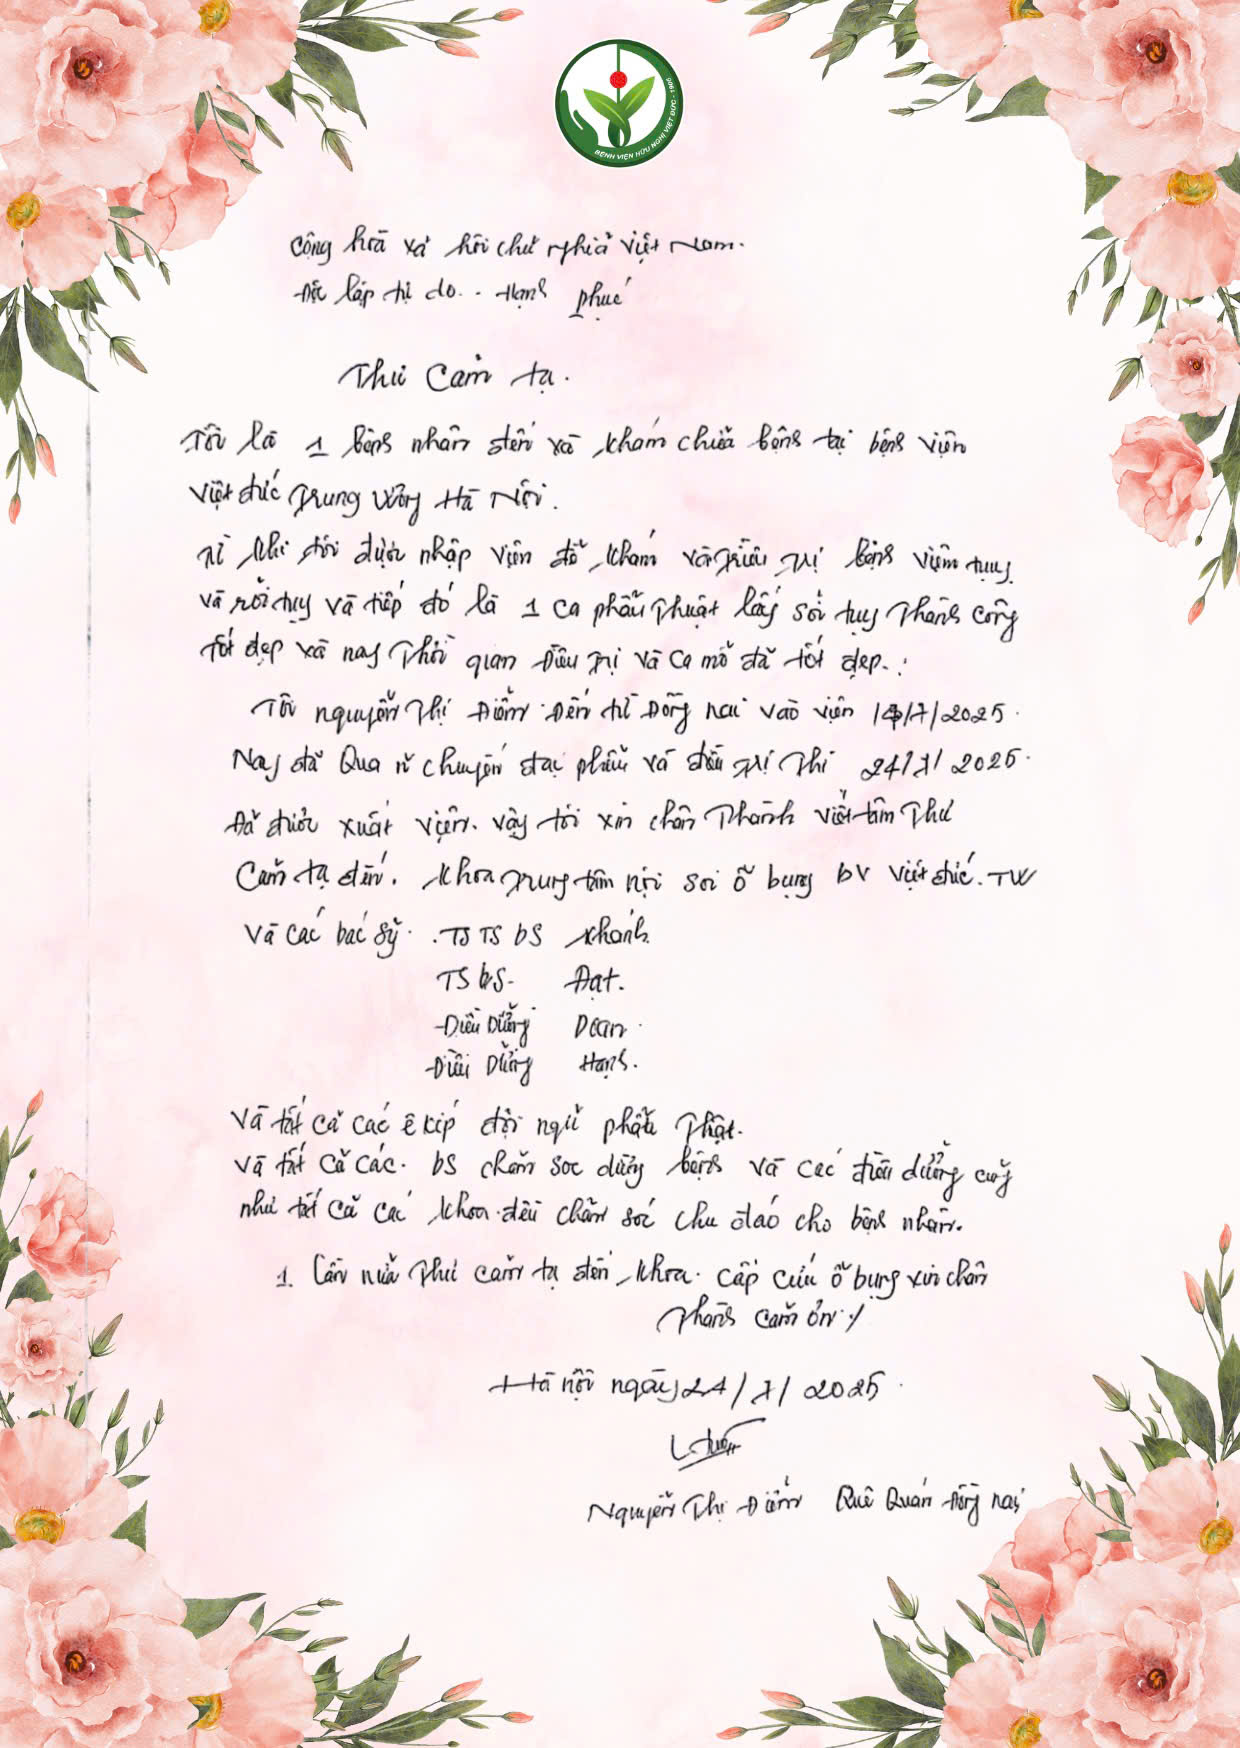 BỆNH VIỆN HỮU NGHỊ VIỆT ĐỨC - 1906
Cộng hoà xã hội chủ nghĩa Việt Nam.
Độc lập tự do.. Hạnh phúc
Thư Cảm tạ.
Tôi là 1 bệnh nhân đến và khám chữa bệnh tại bệnh viện
Việt đức Trung ương Hà Nội.
từ khi tôi được nhập viện để khám và điều trị bệnh viêm tụy
và sỏi tụy và tiếp đó là 1 ca phẫu thuật lấy sỏi tụy thành công
tốt đẹp và nay thời gian điều trị và ca mổ đã tốt đẹp.
Tôi nguyễn Thị Điểm Đến từ Đồng nai vào viện /7/2025.
Nay đã Qua chuyến đại phẫu và điều trị thì 24/7/2025.
Đã được xuất viện. vậy tôi xin chân thành viết tâm thư
Cảm tạ đến. khoa trung tâm nội soi ổ bụng BV việt đức. TW
Và các bác sỹ. TS TS bS Khánh.
TS bS. Đạt.
Điều Dưỡng Doan.
Điều Dưỡng Hạnh.
Và tất cả các ê kíp đội ngũ phẫu thật.
và tất cả các. bS chăm soc bệnh và các điều dưỡng cũng
như tất cả các khoa đều chăm sóc chu đáo cho bệnh nhân.
1 lần nữa thư cảm tạ đến khoa. cấp cứu ổ bụng xin chân
thành cảm ơn./
Hà nội ngày 24/7/2025.
Nguyễn Thị Điểm Quê Quán Đồng nai